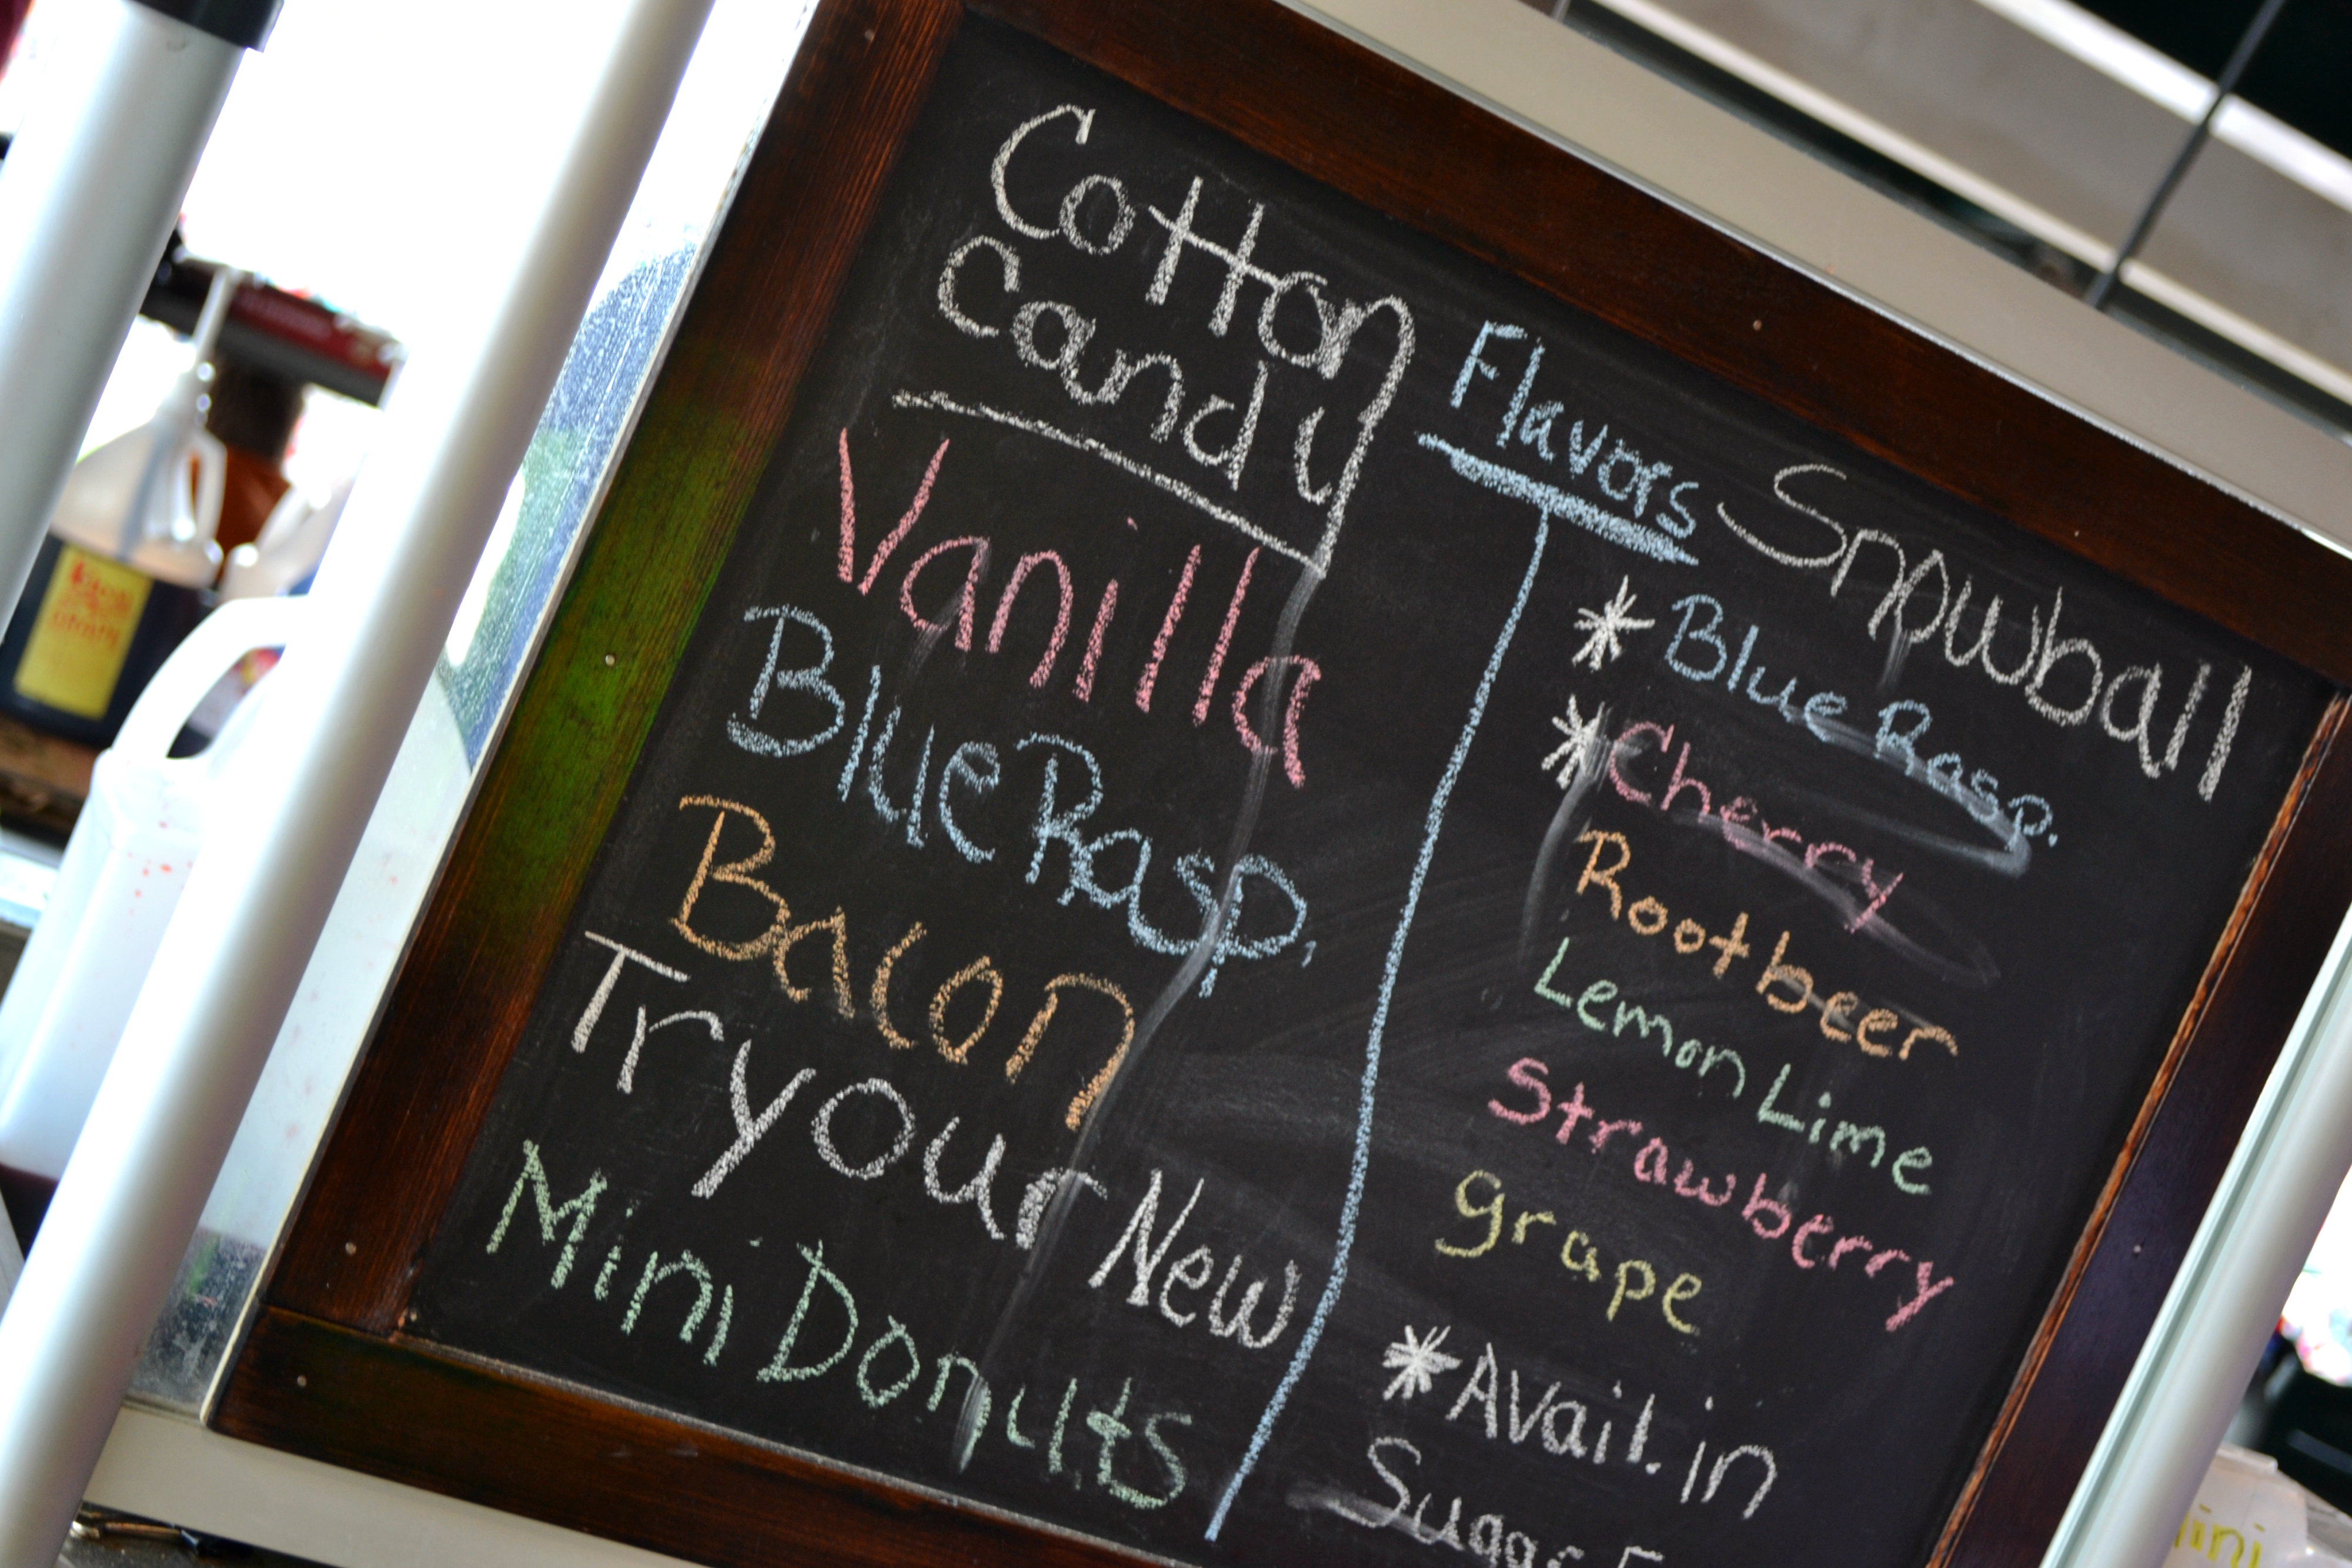 Cotton
Candy
Vanilla
Blue Rasp.
Bacon
Try our New
Mini Donuts
Flavors
Snowball
*Blue Rasp.
*Cherry
Rootbeer
Lemon Lime
Strawberry
grape
*Avail. in
Sugar F